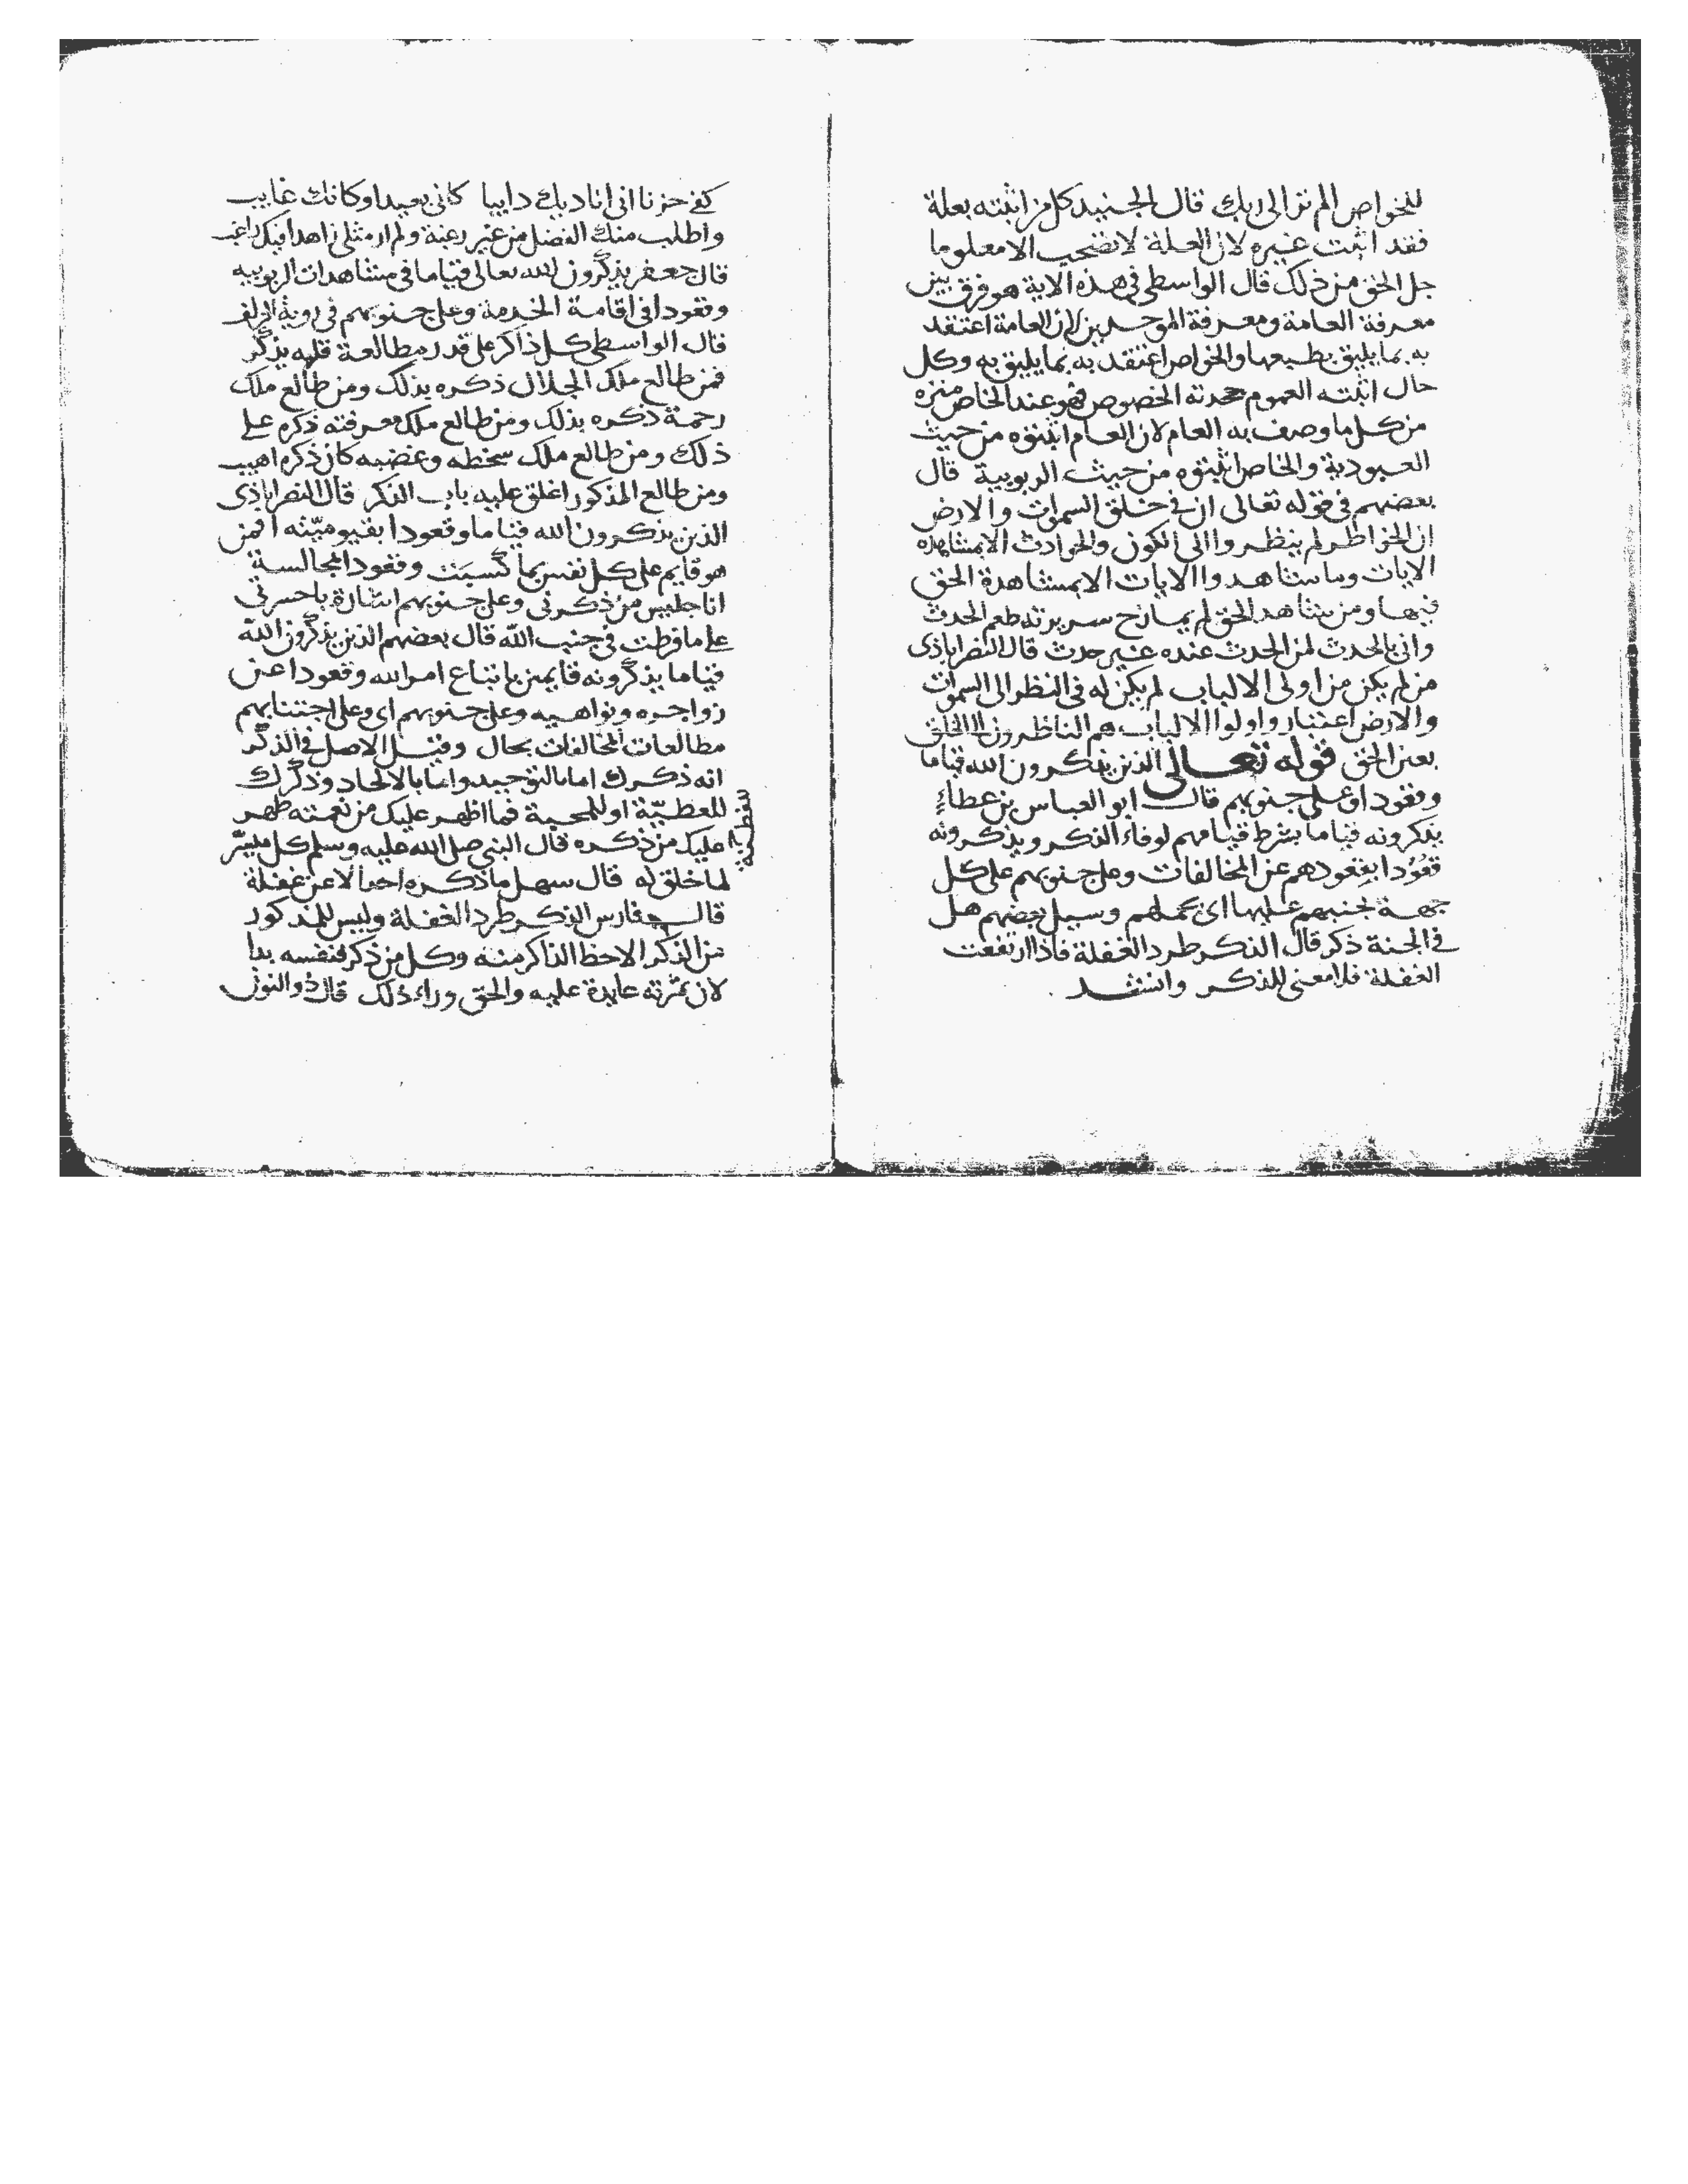 للخواص الم تر الى ربك قال الجنيد كل من اثبته بعلة
فقد اثبت غيره لان العلة لا تصحب الا معلوما
جل الحق من ذلك قال الواسطى فى هذه الاية هو فرق بين
معرفة العامة ومعرفة الموحدين لان العامة اعتقد
به بما يليق بطبعها والخواص اعتقد به بما يليق به وكل
حال اثبته العموم جحدته الخصوص فهو عند الخاص منزه
من كل ما وصف به العام لان العام اثبتوه من حيث
العبودية والخاص اثبتوه من حيث الربوبية قال
بعضهم فى قوله تعالى ان فى خلق السموات والارض
ان الخواطر لم ينظروا الى الكون والحوادث الا بمشاهدة
الايات وما شاهدوا الايات الا بمشاهدة الحق
فيها ومن شاهد الحق لم يمازج سريرته طعم الحدث
وانى بالحدث لمن الحدث عنده غير حدث قال النصراباذى
من لم يكن من اولى الالباب لم يكن له فى النظر الى السموات
والارض اعتبار واولوا الالباب هم الناظرون الى الخلق
بعين الحق قوله تعالى الذين يذكرون الله قياما
وقعودا وعلى جنوبهم قال ابو العباس بن عطاء
يذكرونه قياما بشرط قيامهم لوفاء الذكر ويذكرونه
قعودا بقعودهم عن المخالفات وعلى جنوبهم على كل
جهة تجنبهم عليها اى تحملهم وسيل بعضهم هل
فى الجنة ذكر قال الذكر طرد الغفلة فاذا ارتفعت
الغفلة فلا معنى للذكر وانشد
كفى حزنا انى اناديك دايبا كانى بعيد او كانك غايب
واطلب منك الفضل من غير رغبة ولم ار مثلى زاهدا فيك راغب
قال جعفر يذكرون الله تعالى قياما فى مشاهدات الربوبيه
وقعودا فى اقامة الخدمة وعلى جنوبهم فى روية الزلف
قال الواسطى كل ذاكر على قدر مطالعة قلبه يذكر
فمن طالع ملك الجلال ذكره بذلك ومن طالع ملك
رحمة ذكره بذلك ومن طالع ملك معرفته ذكره على
ذلك ومن طالع ملك سخطه وغضبه كان ذكره اهيب
ومن طالع المذكور اغلق عليه باب الذكر قال النصراباذى
الذين يذكرون الله قياما وقعودا بقيوميته افمن
هو قايم على كل نفس بما كسبت وقعودا لمجالسة
انا جليس من ذكرنى وعلى جنوبهم اشارة ياحسرتى
على ما فرطت فى جنب الله قال بعضهم الذين يذكرون الله
قياما يذكرونه قايمين باتباع امر الله وقعودا عن
زواجره ونواهيه وعلى جنوبهم اى وعلى اجتنابهم
مطالعات المخالفات بحال وقيل الاصل فى الذكر
انه ذكرك اما بالتوحيد واما بالالحاد وذكرك
للعطية او للمحبة فما اظهر عليك من نعمته ظهر
عليك من ذكره قال النبى صلى الله عليه وسلم كل ميسر
لما خلق له قال سهل ما ذكره احد الا عن غفلة
قال فارس الذكر طرد الغفلة وليس للمذكور
من الذكر الا حظ الذاكر منه وكل من ذكر فنفسه بدا
لان ثمرته عايدة عليه والحق وراء ذلك قال ذو النون